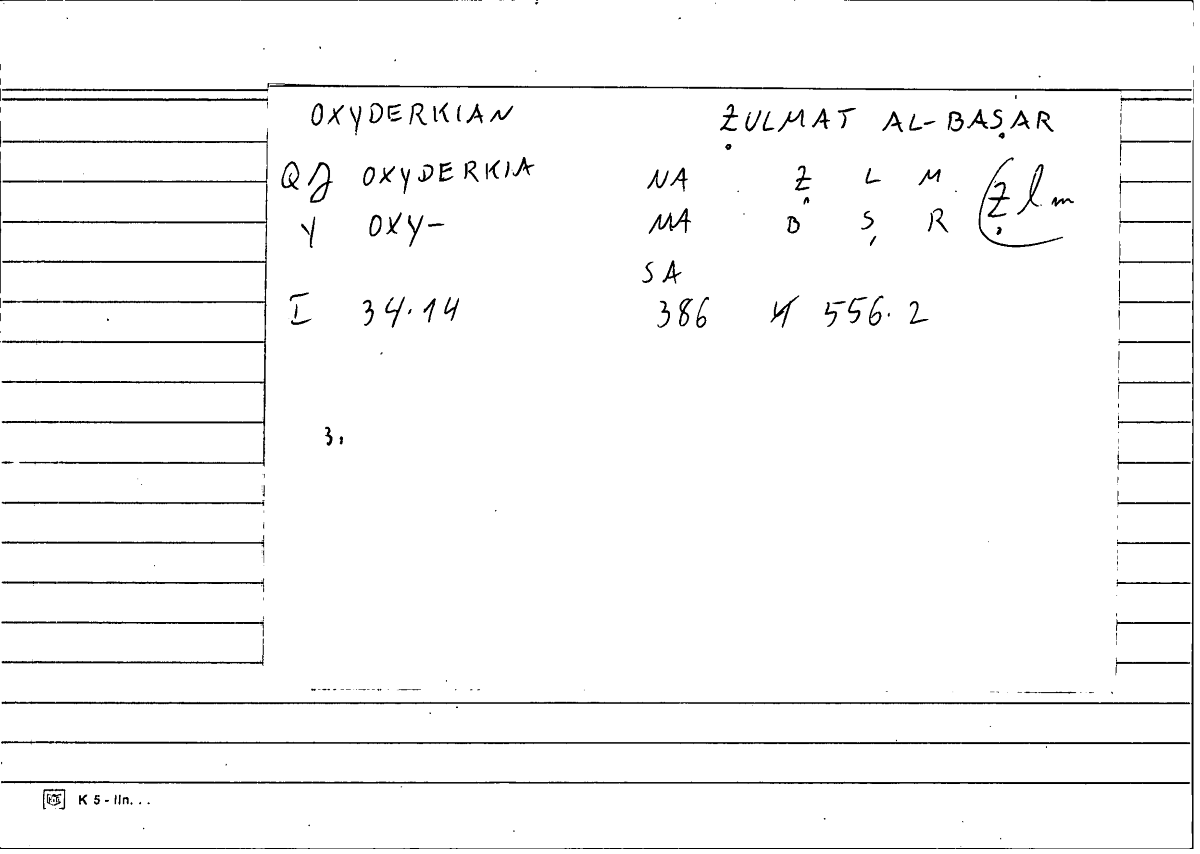 OXYDERKIAN ẒULMAT AL-BAṢAR
QJ OXYDERKIA NA Ẓ L M
Y OXY- MA B Ṣ R Ẓlm
SA
I 34.14 386 556.2
3.
K 5 - lln. . .